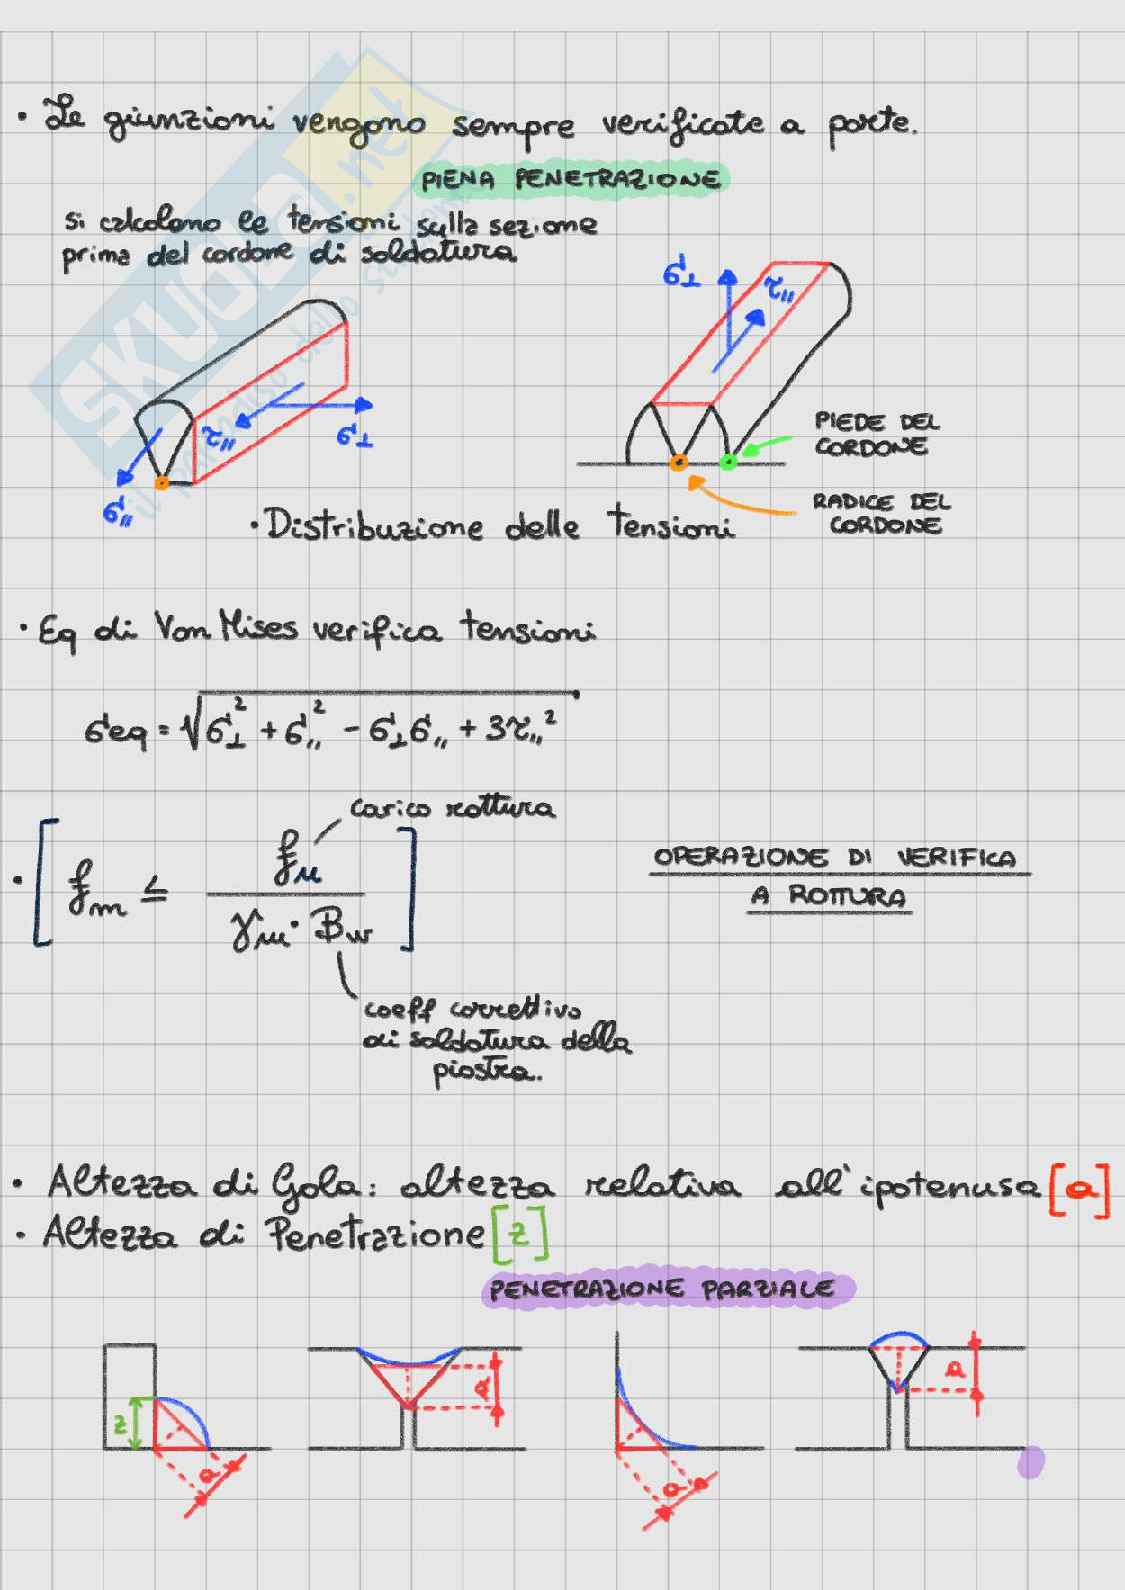 • Le giunzioni vengono sempre verificate a parte.
PIENA PENETRAZIONE
si calcolano le tensioni sulla sezione
prima del cordone di saldatura
σ⊥
τ//
τ//
σ⊥
σ//
PIEDE DEL
CORDONE
RADICE DEL
CORDONE
• Distribuzione delle tensioni
• Eq di Von Mises verifica tensioni
σeq = √σ⊥² + σ//² - σ⊥σ// + 3τ//²
carico rottura
• [ fm ≤ fu / γm · Bw ]
OPERAZIONE DI VERIFICA
A ROTTURA
coeff correttivo
di saldatura della
piastra.
• Altezza di Gola: altezza relativa all'ipotenusa [a]
• Altezza di Penetrazione [z]
PENETRAZIONE PARZIALE
z
a
a
a
a
SKUOLA.net